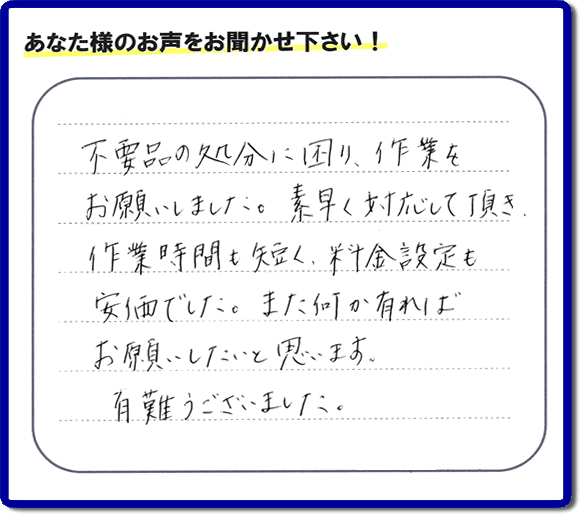 あなた様のお声をお聞かせ下さい！
不要品の処分に困り、作業を
お願いしました。素早く対応して頂き、
作業時間も短く、料金設定も
安価でした。また何か有れば
お願いしたいと思います。
有難うございました。